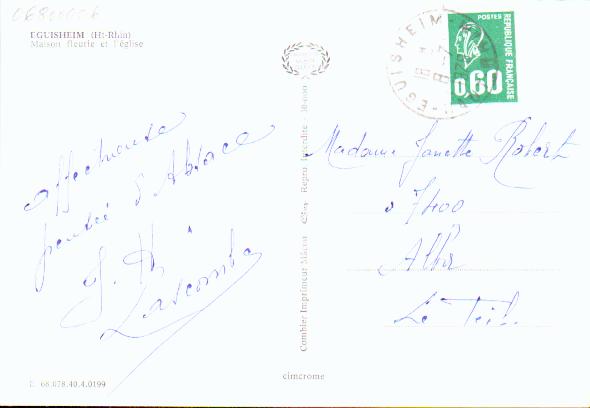 EGUISHEIM (Ht-Rhin)
Maison fleurie et l'église
affectueuse
pensée d'Alsace
J. Ph.
Lascombe
EGUISHEIM
POSTES
REPUBLIQUE FRANÇAISE
0,60
Madame Janette Robert
07400
Alba
Le Teil
Combier Imprimeur Mâcon
Repro Interdite
cimcrome
E 68.078.40.4.0199